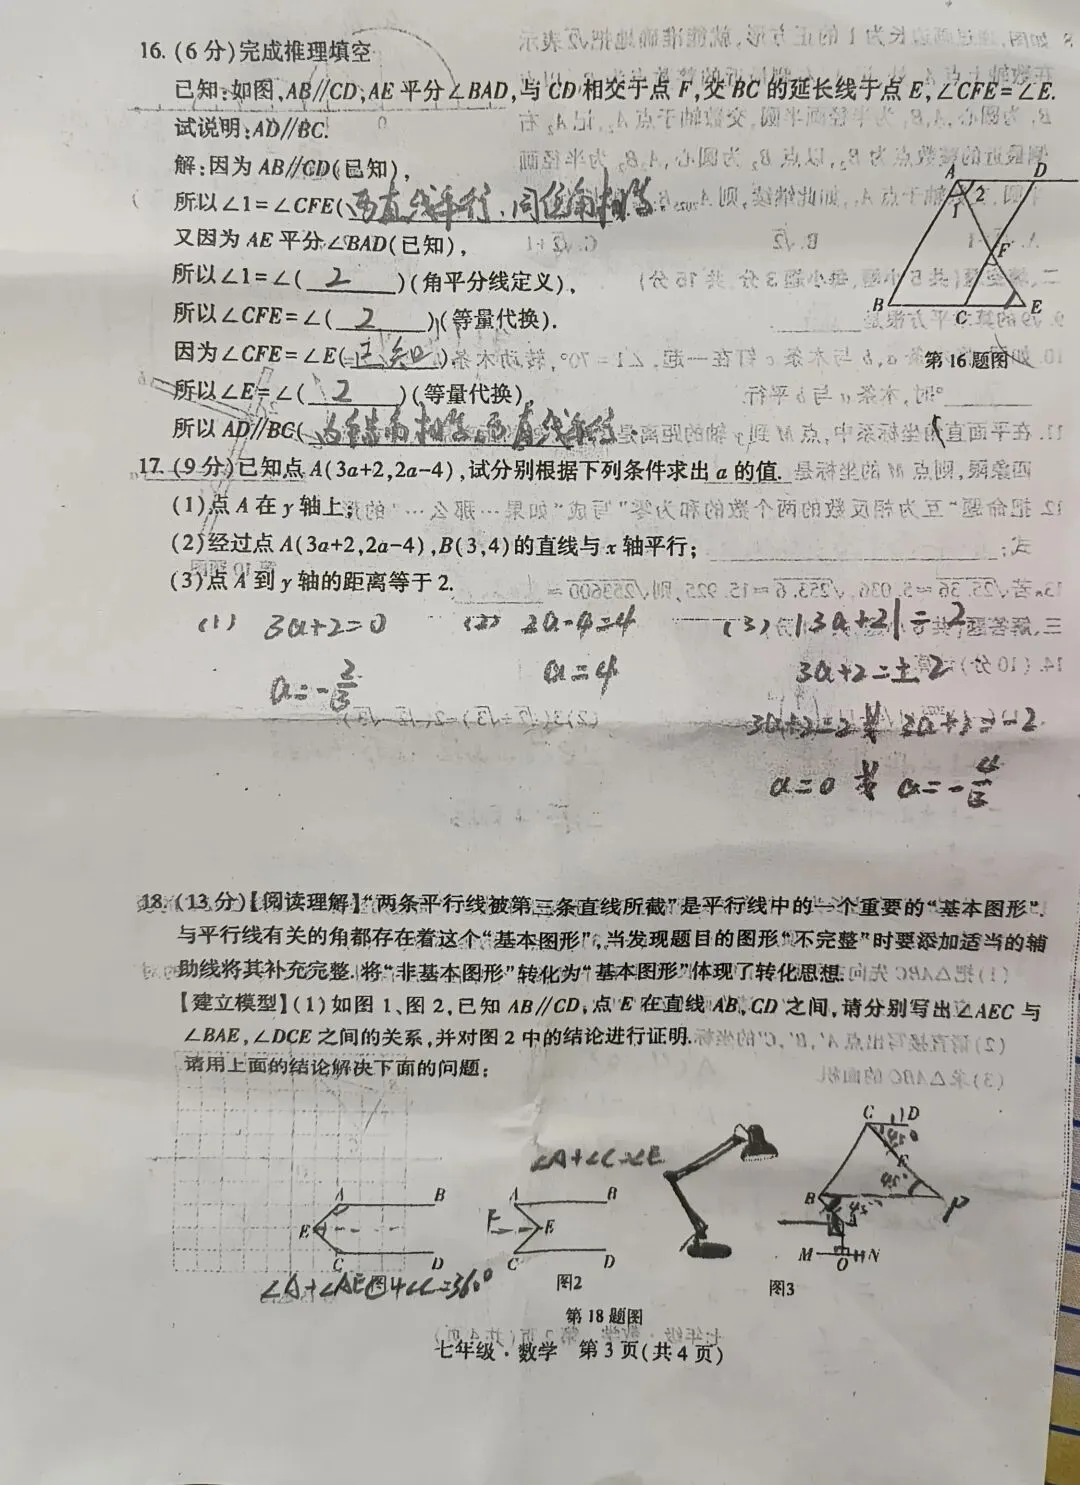 16. (6分)完成推理填空
已知:如图,AB∥CD,AE平分∠BAD,与CD相交于点F,交BC的延长线于点E,∠CFE=∠E.
试说明:AD∥BC.
解:因为AB∥CD(已知),
所以∠1=∠CFE(两直线平行,同位角相等.
又因为AE平分∠BAD(已知),
所以∠1=∠(2)(角平分线定义),
所以∠CFE=∠(2)(等量代换).
因为∠CFE=∠E(已知),
所以∠E=∠(2)(等量代换),
所以AD∥BC(内错角相等,两直线平行.
A D
1 2
F
B C E
第16题图
17. (9分)已知点A(3a+2,2a-4),试分别根据下列条件求出a的值.
(1)点A在y轴上;
(2)经过点A(3a+2,2a-4),B(3,4)的直线与x轴平行;
(3)点A到y轴的距离等于2.
(1) 3a+2=0 (2) 2a-4=4 (3) |3a+2|=2
a=-2/3 a=4 3a+2=±2
3a+2=2 或 3a+2=-2
a=0 或 a=-4/3
18. (13分)【阅读理解】“两条平行线被第三条直线所截”是平行线中的一个重要的“基本图形”.
与平行线有关的角都存在着这个“基本图形”,当发现题目的图形“不完整”时要添加适当的辅
助线将其补充完整.将“非基本图形”转化为“基本图形”体现了转化思想.
【建立模型】(1)如图1、图2,已知AB∥CD,点E在直线AB,CD之间,请分别写出∠AEC与
∠BAE,∠DCE之间的关系,并对图2中的结论进行证明.
请用上面的结论解决下面的问题:
∠A+∠C=∠E
A B
E
C D
A B
F E
C D
C D
45°
F
45°
B 45° P
M O N
图2
图3
第18题图
七年级·数学 第3页(共4页)